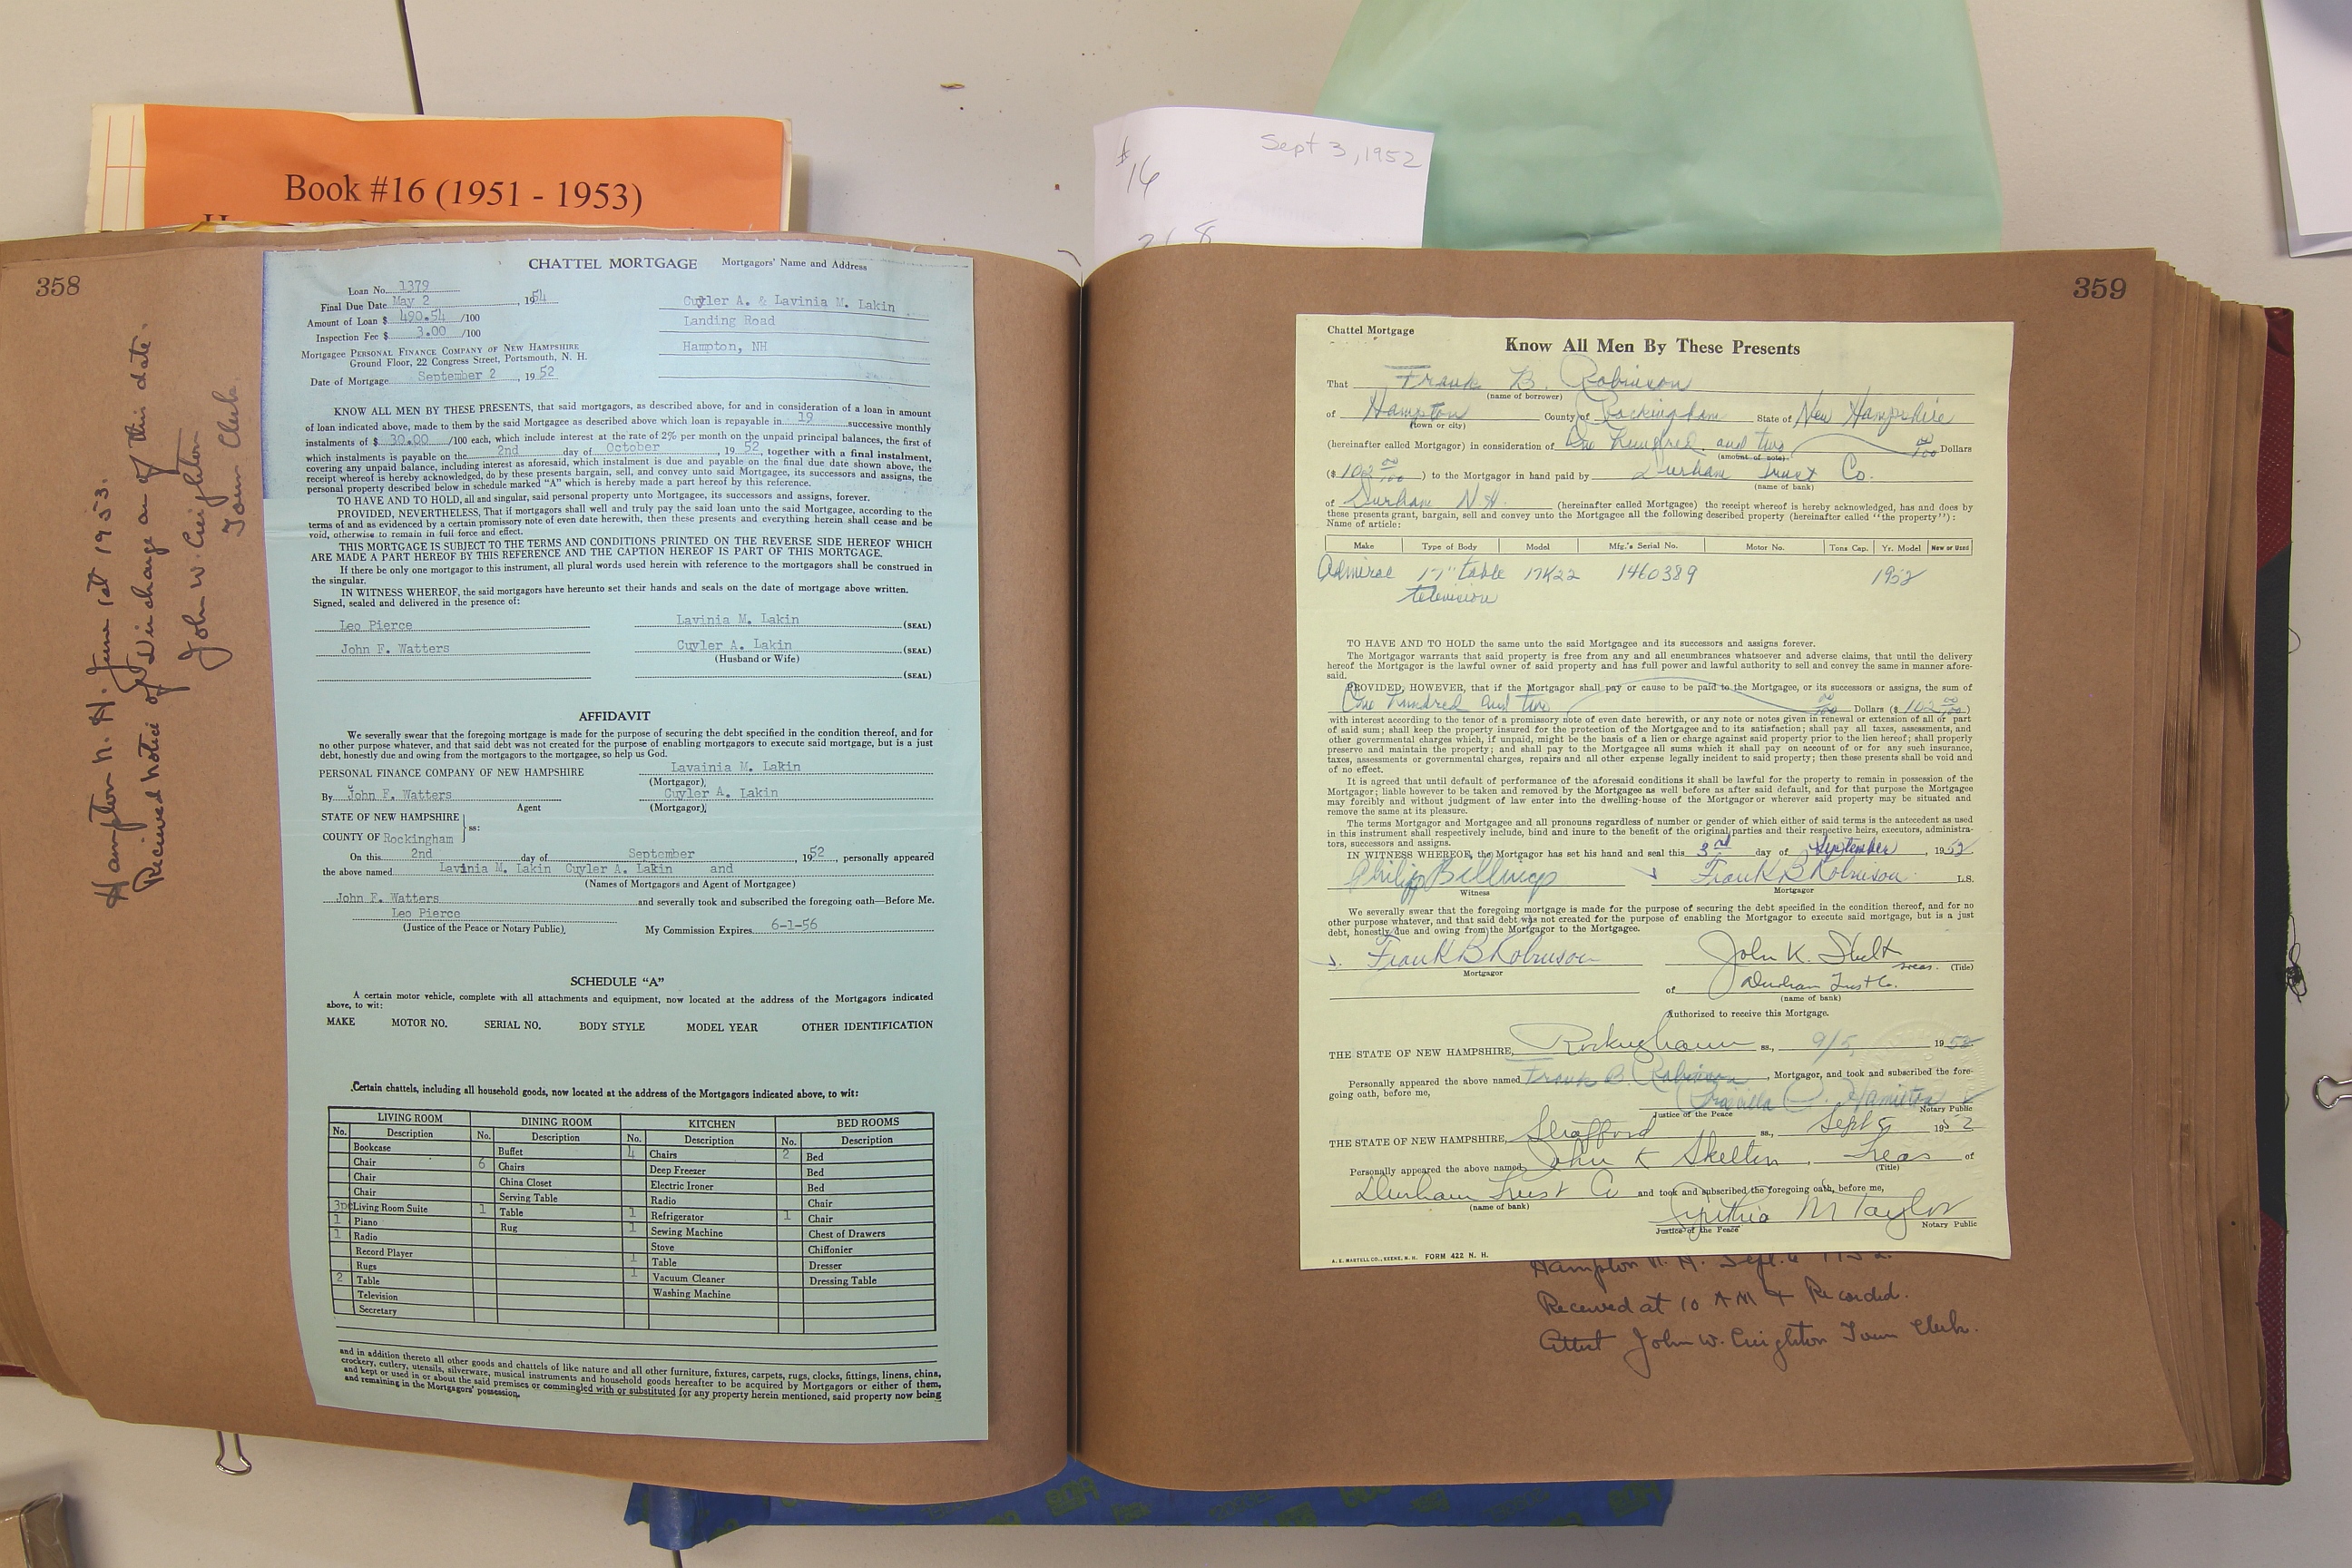 Book #16 (1951 - 1953)
Sept 3, 1952
358
Hampton N. H. June 1st 1953.
Recieved notice of Discharge on of this date.
John W. Creighton
Town Clerk.
CHATTEL MORTGAGE Mortgagors' Name and Address
Loan No. 1379
Final Due Date May 2, 1954
Amount of Loan $ 490.54 /100
Inspection Fee $ 3.00 /100
Cuyler A. & Lavinia M. Lakin
Landing Road
Hampton, NH
Mortgagee PERSONAL FINANCE COMPANY OF NEW HAMPSHIRE
Ground Floor, 22 Congress Street, Portsmouth, N. H.
Date of Mortgage September 2, 1952
KNOW ALL MEN BY THESE PRESENTS, that said mortgagors, as described above, for and in consideration of a loan in amount
of loan indicated above, made to them by the said Mortgagee as described above which loan is repayable in 19 successive monthly
instalments of $ 30.00 /100 each, which include interest at the rate of 2% per month on the unpaid principal balances, the first of
which instalments is payable on the 2nd day of October, 1952, together with a final instalment,
covering any unpaid balance, including interest as aforesaid, which instalment is due and payable on the final due date shown above, the
receipt whereof is hereby acknowledged, do by these presents bargain, sell, and convey unto said Mortgagee, its successors and assigns, the
personal property described below in schedule marked "A" which is hereby made a part hereof by this reference.
TO HAVE AND TO HOLD, all and singular, said personal property unto Mortgagee, its successors and assigns, forever.
PROVIDED, NEVERTHELESS, That if mortgagors shall well and truly pay the said loan unto the said Mortgagee, according to the
terms of and as evidenced by a certain promissory note of even date herewith, then these presents and everything herein shall cease and be
void, otherwise to remain in full force and effect.
THIS MORTGAGE IS SUBJECT TO THE TERMS AND CONDITIONS PRINTED ON THE REVERSE SIDE HEREOF WHICH
ARE MADE A PART HEREOF BY THIS REFERENCE AND THE CAPTION HEREOF IS PART OF THIS MORTGAGE.
If there be only one mortgagor to this instrument, all plural words used herein with reference to the mortgagors shall be construed in
the singular.
IN WITNESS WHEREOF, the said mortgagors have hereunto set their hands and seals on the date of mortgage above written.
Signed, sealed and delivered in the presence of:
Leo Pierce Lavinia M. Lakin (SEAL)
John F. Watters Cuyler A. Lakin (SEAL)
(Husband or Wife)
(SEAL)
AFFIDAVIT
We severally swear that the foregoing mortgage is made for the purpose of securing the debt specified in the condition thereof, and for
no other purpose whatever, and that said debt was not created for the purpose of enabling mortgagors to execute said mortgage, but is a just
debt, honestly due and owing from the mortgagors to the mortgagee, so help us God.
PERSONAL FINANCE COMPANY OF NEW HAMPSHIRE Lavainia M. Lakin
(Mortgagor)
By John F. Watters Cuyler A. Lakin
Agent (Mortgagor)
STATE OF NEW HAMPSHIRE
COUNTY OF Rockingham ss:
On this 2nd day of September, 1952, personally appeared
the above named Lavinia M. Lakin Cuyler A. Lakin and
(Names of Mortgagors and Agent of Mortgagee)
John F. Watters and severally took and subscribed the foregoing oath—Before Me.
Leo Pierce
(Justice of the Peace or Notary Public) My Commission Expires 6-1-56
SCHEDULE "A"
A certain motor vehicle, complete with all attachments and equipment, now located at the address of the Mortgagors indicated
above, to wit:
MAKE MOTOR NO. SERIAL NO. BODY STYLE MODEL YEAR OTHER IDENTIFICATION
Certain chattels, including all household goods, now located at the address of the Mortgagors indicated above, to wit:
LIVING ROOM DINING ROOM KITCHEN BED ROOMS
No. Description No. Description No. Description No. Description
Bookcase Buffet 4 Chairs 2 Bed
Chair 6 Chairs Deep Freezer Bed
Chair China Closet Electric Ironer Bed
Chair Serving Table Radio Chair
3pc Living Room Suite 1 Table 1 Refrigerator 1 Chair
1 Piano Rug 1 Sewing Machine Chest of Drawers
1 Radio Stove Chiffonier
Record Player 1 Table Dresser
Rugs 1 Vacuum Cleaner Dressing Table
2 Table Washing Machine
Television
Secretary
and in addition thereto all other goods and chattels of like nature and all other furniture, fixtures, carpets, rugs, clocks, fittings, linens, china,
crockery, cutlery, utensils, silverware, musical instruments and household goods hereafter to be acquired by Mortgagors or either of them,
and kept or used in or about the said premises or commingled with or substituted for any property herein mentioned, said property now being
and remaining in the Mortgagors' possession.
359
Chattel Mortgage
Know All Men By These Presents
That Frank B. Robinson
(name of borrower)
of Hampton County of Rockingham State of New Hampshire
(town or city)
(hereinafter called Mortgagor) in consideration of One hundred and two 00/100 Dollars
(amount of note)
($ 102 00/100) to the Mortgagor in hand paid by Durham Trust Co.
(name of bank)
of Durham N.H. (hereinafter called Mortgagee) the receipt whereof is hereby acknowledged, has and does by
these presents grant, bargain, sell and convey unto the Mortgagee all the following described property (hereinafter called "the property"):
Name of article:
Make Type of Body Model Mfg.'s Serial No. Motor No. Tons Cap. Yr. Model New or Used
Admiral 17" table 17K22 1460389 1952
television
TO HAVE AND TO HOLD the same unto the said Mortgagee and its successors and assigns forever.
The Mortgagor warrants that said property is free from any and all encumbrances whatsoever and adverse claims, that until the delivery
hereof the Mortgagor is the lawful owner of said property and has full power and lawful authority to sell and convey the same in manner afore-
said.
PROVIDED, HOWEVER, that if the Mortgagor shall pay or cause to be paid to the Mortgagee, or its successors or assigns, the sum of
One hundred and two 00/100 Dollars ($ 102 00/100)
with interest according to the tenor of a promissory note of even date herewith, or any note or notes given in renewal or extension of all or part
of said sum; shall keep the property insured for the protection of the Mortgagee and to its satisfaction; shall pay all taxes, assessments, and
other governmental charges which, if unpaid, might be the basis of a lien or charge against said property prior to the lien hereof; shall properly
preserve and maintain the property; and shall pay to the Mortgagee all sums which it shall pay on account of or for any such insurance,
taxes, assessments or governmental charges, repairs and all other expense legally incident to said property; then these presents shall be void and
of no effect.
It is agreed that until default of performance of the aforesaid conditions it shall be lawful for the property to remain in possession of the
Mortgagor; liable however to be taken and removed by the Mortgagee as well before as after said default, and for that purpose the Mortgagee
may forcibly and without judgment of law enter into the dwelling-house of the Mortgagor or wherever said property may be situated and
remove the same at its pleasure.
The terms Mortgagor and Mortgagee and all pronouns regardless of number or gender of which either of said terms is the antecedent as used
in this instrument shall respectively include, bind and inure to the benefit of the original parties and their respective heirs, executors, administra-
tors, successors and assigns.
IN WITNESS WHEREOF, the Mortgagor has set his hand and seal this 3rd day of September, 1952.
Philip Billings Frank B Robinson L.S.
Witness Mortgagor
We severally swear that the foregoing mortgage is made for the purpose of securing the debt specified in the condition thereof, and for no
other purpose whatever, and that said debt was not created for the purpose of enabling the Mortgagor to execute said mortgage, but is a just
debt, honestly due and owing from the Mortgagor to the Mortgagee.
Frank B Robinson John K. Skelt
Mortgagor Treas. (Title)
of Durham Trust Co.
(name of bank)
Authorized to receive this Mortgage.
THE STATE OF NEW HAMPSHIRE, Rockingham ss., 9/5, 1952
Personally appeared the above named Frank B. Robinson, Mortgagor, and took and subscribed the fore-
going oath, before me, Priscilla Hamilton
Justice of the Peace Notary Public
THE STATE OF NEW HAMPSHIRE, Strafford ss., Sept 1952
Personally appeared the above named John K Skelton, Treas of
(Title)
Durham Trust Co and took and subscribed the foregoing oath, before me,
(name of bank)
Cynthia M Taylor
Justice of the Peace Notary Public
A. E. MARTELL CO., KEENE, N. H. FORM 422 N. H.
Hampton N. H. Sept. 6 1952.
Received at 10 AM + Recorded.
Attest John W. Creighton Town Clerk.